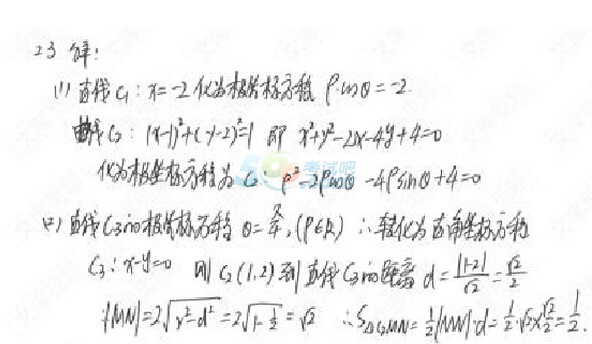 23 解:
(1) 直线C₁: x=-2 化为极坐标方程 ρ·cosθ=-2.
曲线C₂: (x-1)²+(y-2)²=1 即 x²+y²-2x-4y+4=0
化为极坐标方程为 C₂: ρ²-2ρcosθ-4ρsinθ+4=0
(2) 直线C₃的极坐标方程 θ=π/4, (ρ∈R) ∴转化为直角坐标方程
C₃: x-y=0 则C₂(1,2)到直线C₃的距离 d=|1-2|/√2=√2/2
|MN|=2√(r²-d²)=2√(1-1/2)=√2 ∴S△C₂MN=1/2|MN|·d=1/2·√2×√2/2=1/2.
考试吧